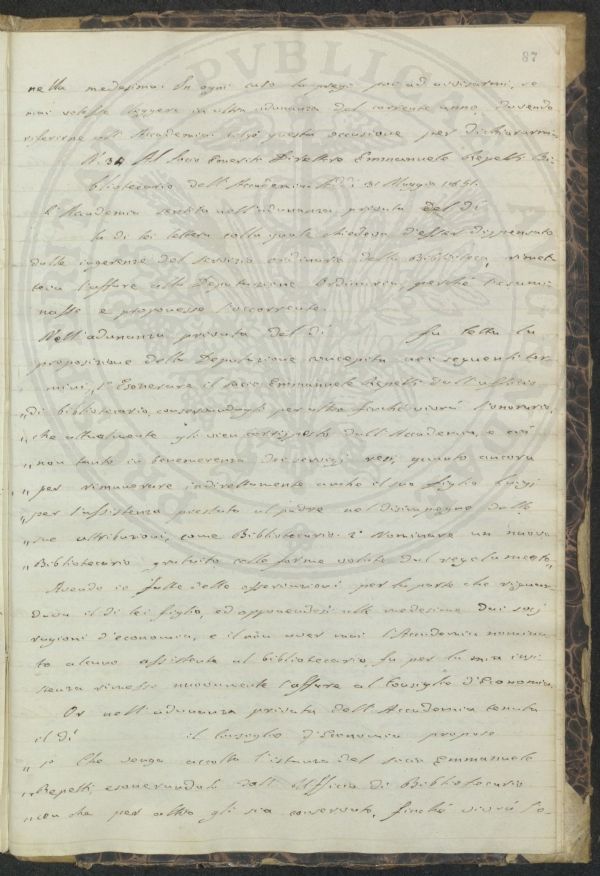 87
nella medesima. In ogni caso la prego poi ad avvisarmi, se
mai volesse leggere in altra adunanza del corrente anno, dovendo
riferirne all'Accademia. Colgo questa occasione per dichiararmi
N. 34 Al Socio Emerito Direttore Emmanuele Repetti Bi-
bliotecario dell'Accademia li di 31 Maggio 1851.
L'Accademia sentita nell'adunanza privata del dì
la di lei lettera colla quale chiedeva d'esser dispensato
dalle ingerenze del servizio ordinario della Biblioteca, rimet-
teva l'affare alla Deputazione Ordinaria, perché l'esami-
nasse e proponesse l'occorrente.
Nell'adunanza privata del dì fu letta la
proposizione della Deputazione concepita nei seguenti ter-
mini, 1° Esonerare il socio Emmanuele Repetti dall'ufficio
„ di bibliotecario, conservandogli per altro finché vivrà l'onorario,
„ che attualmente gli vien corrisposto dall'Accademia, e ciò
„ non tanto in benemerenza dei servizi resi, quanto ancora
„ per rimunerare indirettamente anche il suo figlio Luigi
„ per l'assistenza prestata al padre nel disimpegno delle
„ sue attribuzioni, come Bibliotecario. 2° Nominare un nuovo
„ Bibliotecario gratuito colle forme volute dal regolamento „
Avendo io fatte delle osservazioni per la parte che riguar-
dava il di lei figlio, ed opponendosi alle medesime dai socj
ragioni d'economia, e il non aver mai l'Accademia nomina-
to alcuno assistente al bibliotecario fu per la mia insi-
stenza rimesso nuovamente l'affare al Consiglio d'Economia.
Or nell'adunanza privata dell'Accademia tenuta
il dì il Consiglio d'Economia propose
„ 1° Che venga accolta l'istanza del socio Emmanuele
„ Repetti esonerandolo dall'Ufficio di Bibliotecario
„ con che per altro gli sia conservato, finché vivrà l'o-